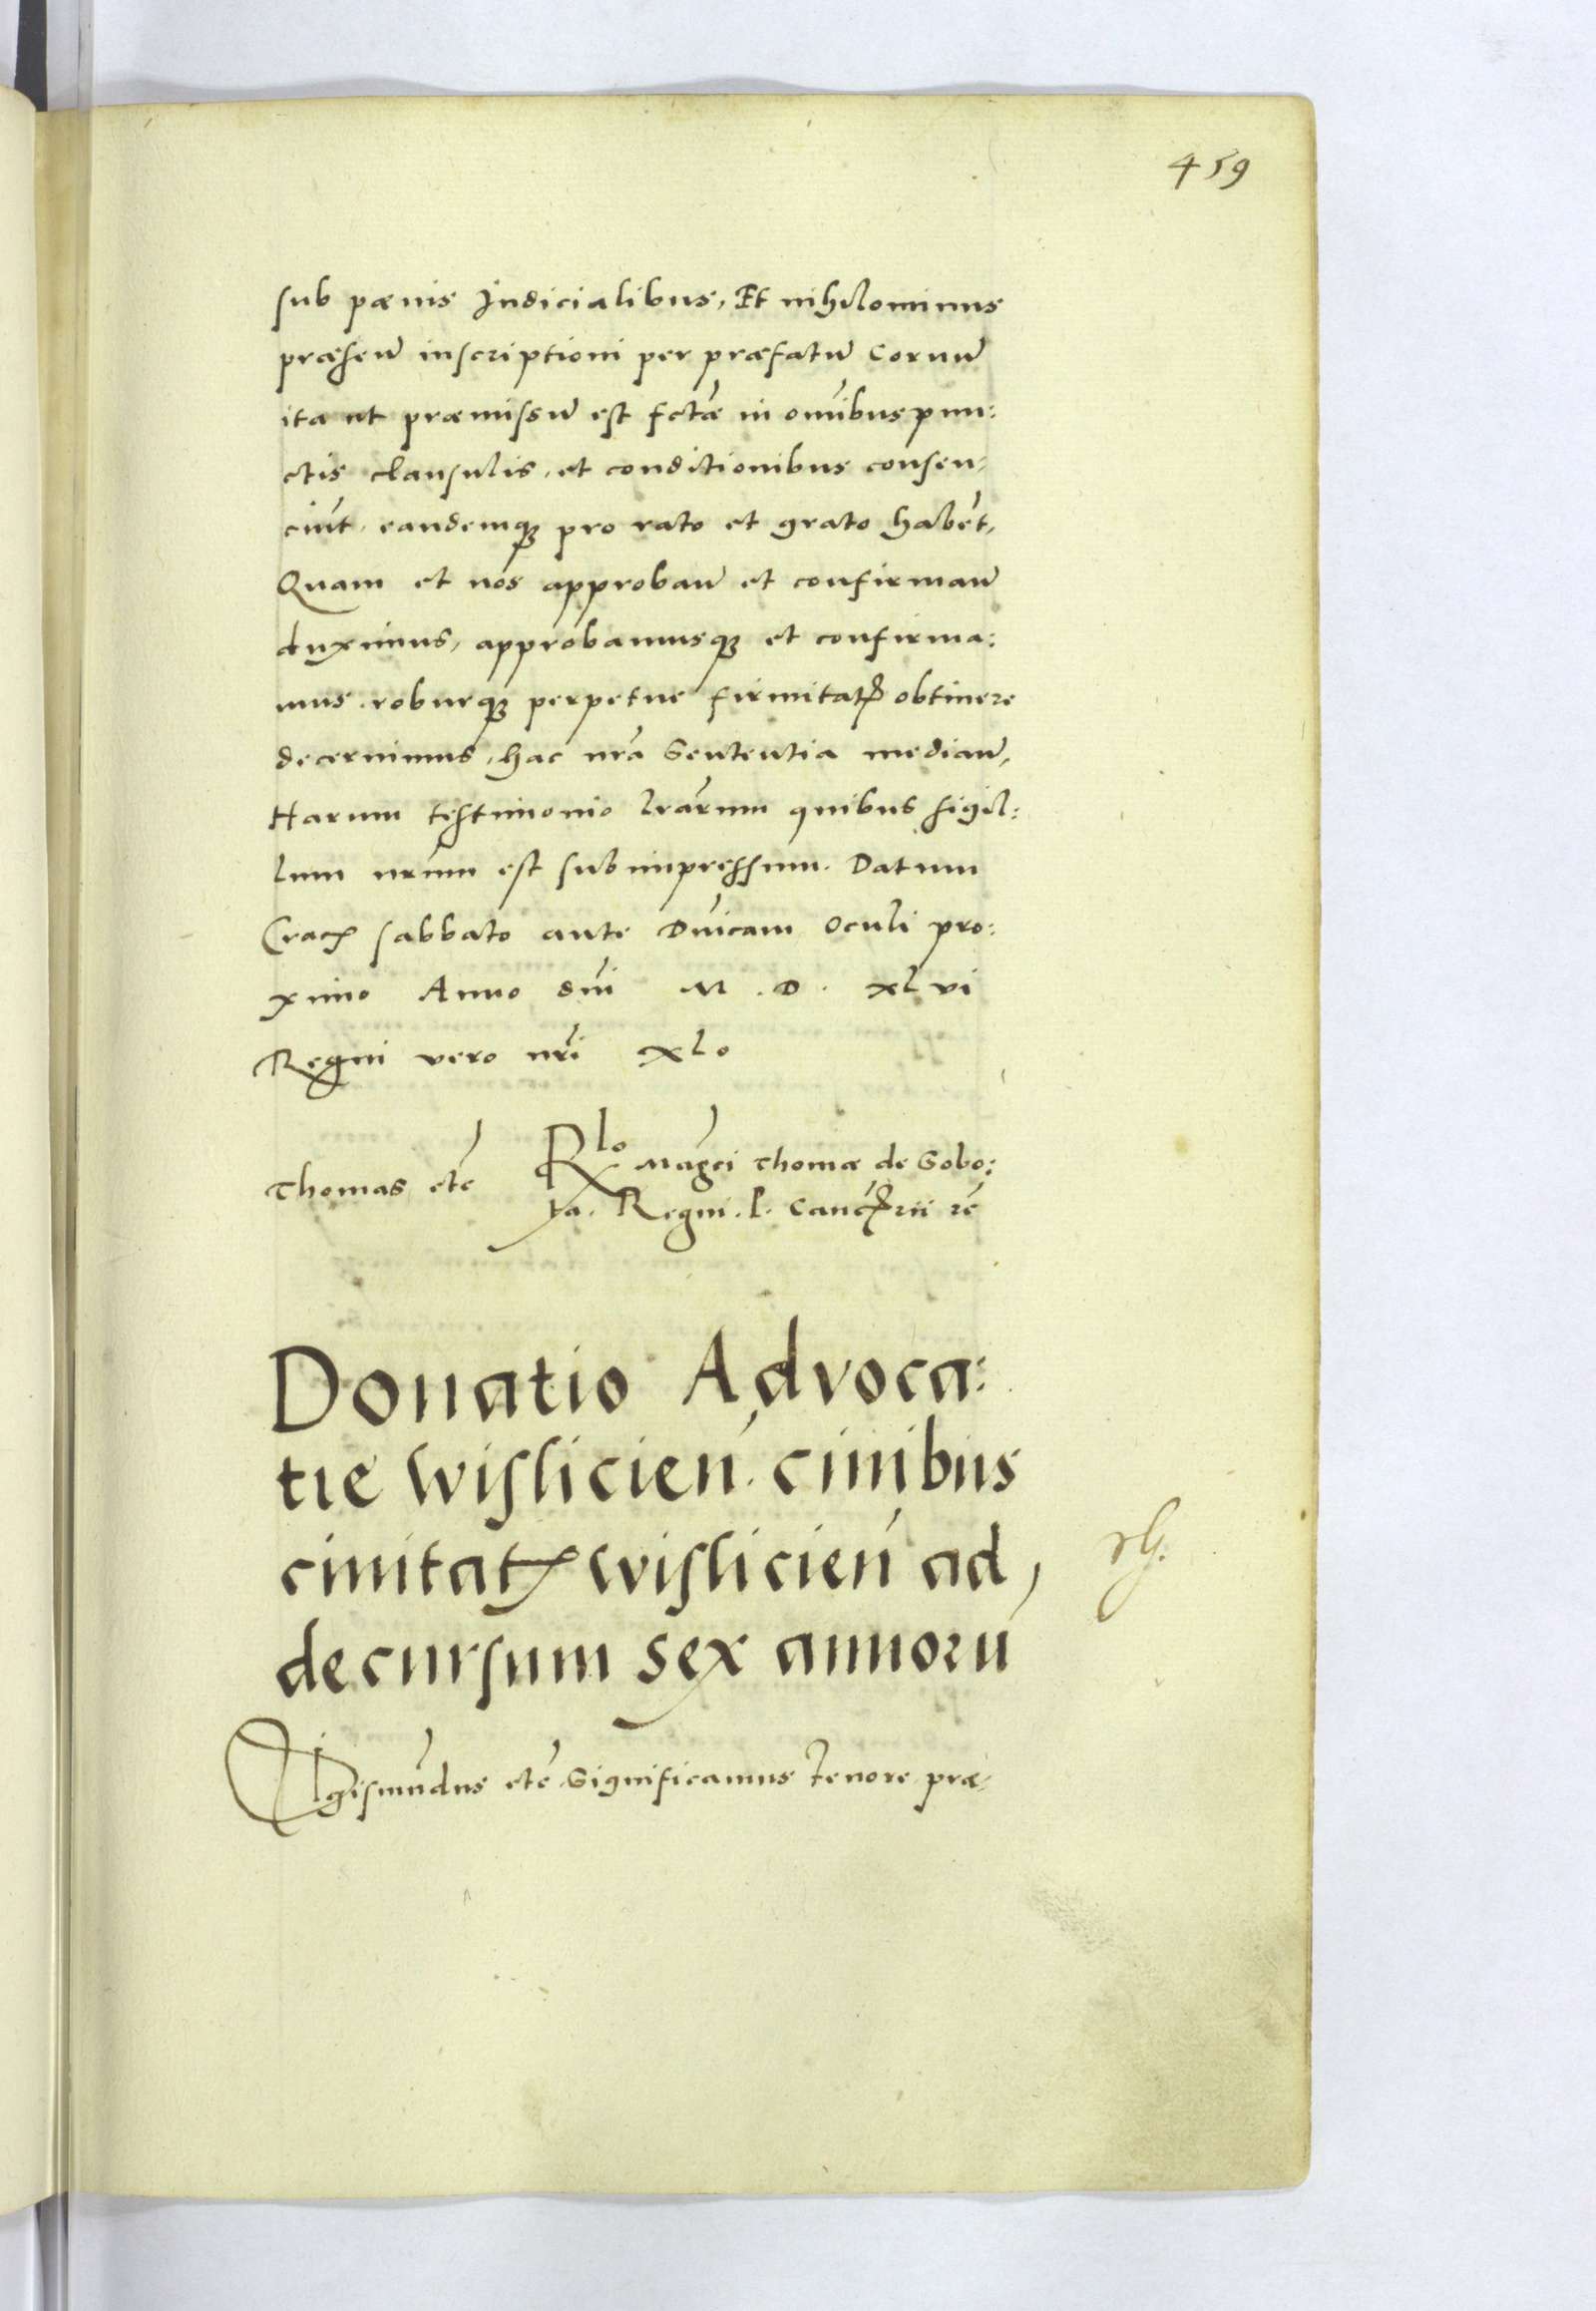 459
sub pœnis Judicialibus, Et nihilominus
præsen̄ inscriptioni per præfatū Corvum̄
ita ut præmissū est fctæ in om̄ibus pun:
ctis clausulis, et conditionibus consen:
ciūt, eandemq3 pro rato et grato habēt,
Quam et nos approban̄ et confirman̄
duximus, approbamusq3 et confirma:
mus, roburq3 perpetue firmitatꝭ obtinere
decernimus, hac nr̄a Sententia median̄,
Harum testimonio lr̄arum quibus sigil:
lum nr̄um est subimpressum. Datum
Cracꝭ sabbato ante Dn̄icam Oculi pro:
ximo Anno dn̄i M. D. xlvi
Regni vero nr̄i xlo
Thomas etc̄ Rlo Mag̃ci Thomæ de Sobo:
ta. Regni. P. Cancꝭrii rē
Donatio Advoca:
tie Wislicien̄. civibus
civitatꝭ Wislicien̄ ad
decursum sex annorū
Sigismūdus etc̄. Significamus tenore præ: